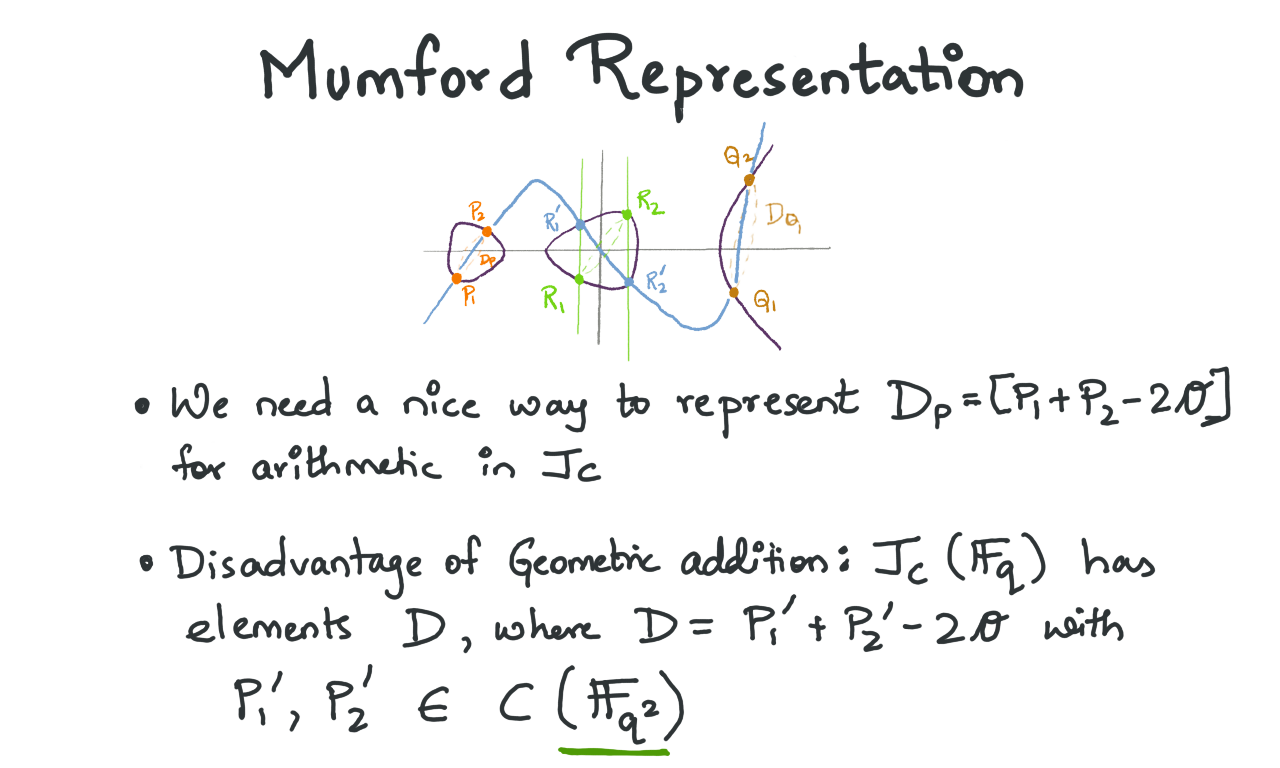 Mumford Representation
P₂
D_P
P₁
R₁'
R₂
R₁
R₂'
Q₂
D_Q₁
Q₁
• We need a nice way to represent D_P = [P₁ + P₂ - 2𝒪]
for arithmetic in J_C
• Disadvantage of Geometric addition: J_C (𝔽_q) has
elements D, where D = P₁' + P₂' - 2𝒪 with
P₁', P₂' ∈ C (𝔽_q²)